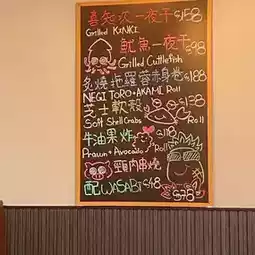 喜知次一夜干 $158
Grilled KINKI
魷魚一夜干 $98
Grilled Cuttlefish
炙燒拖羅蓉赤身卷 $188
NEGI TORO+AKAMI Roll
芝士軟殼 $138
Soft Shell Crabs Roll
牛油果炸 $118
Prawn + Avocado Roll
頸肉串燒
配WASABI $48
$78